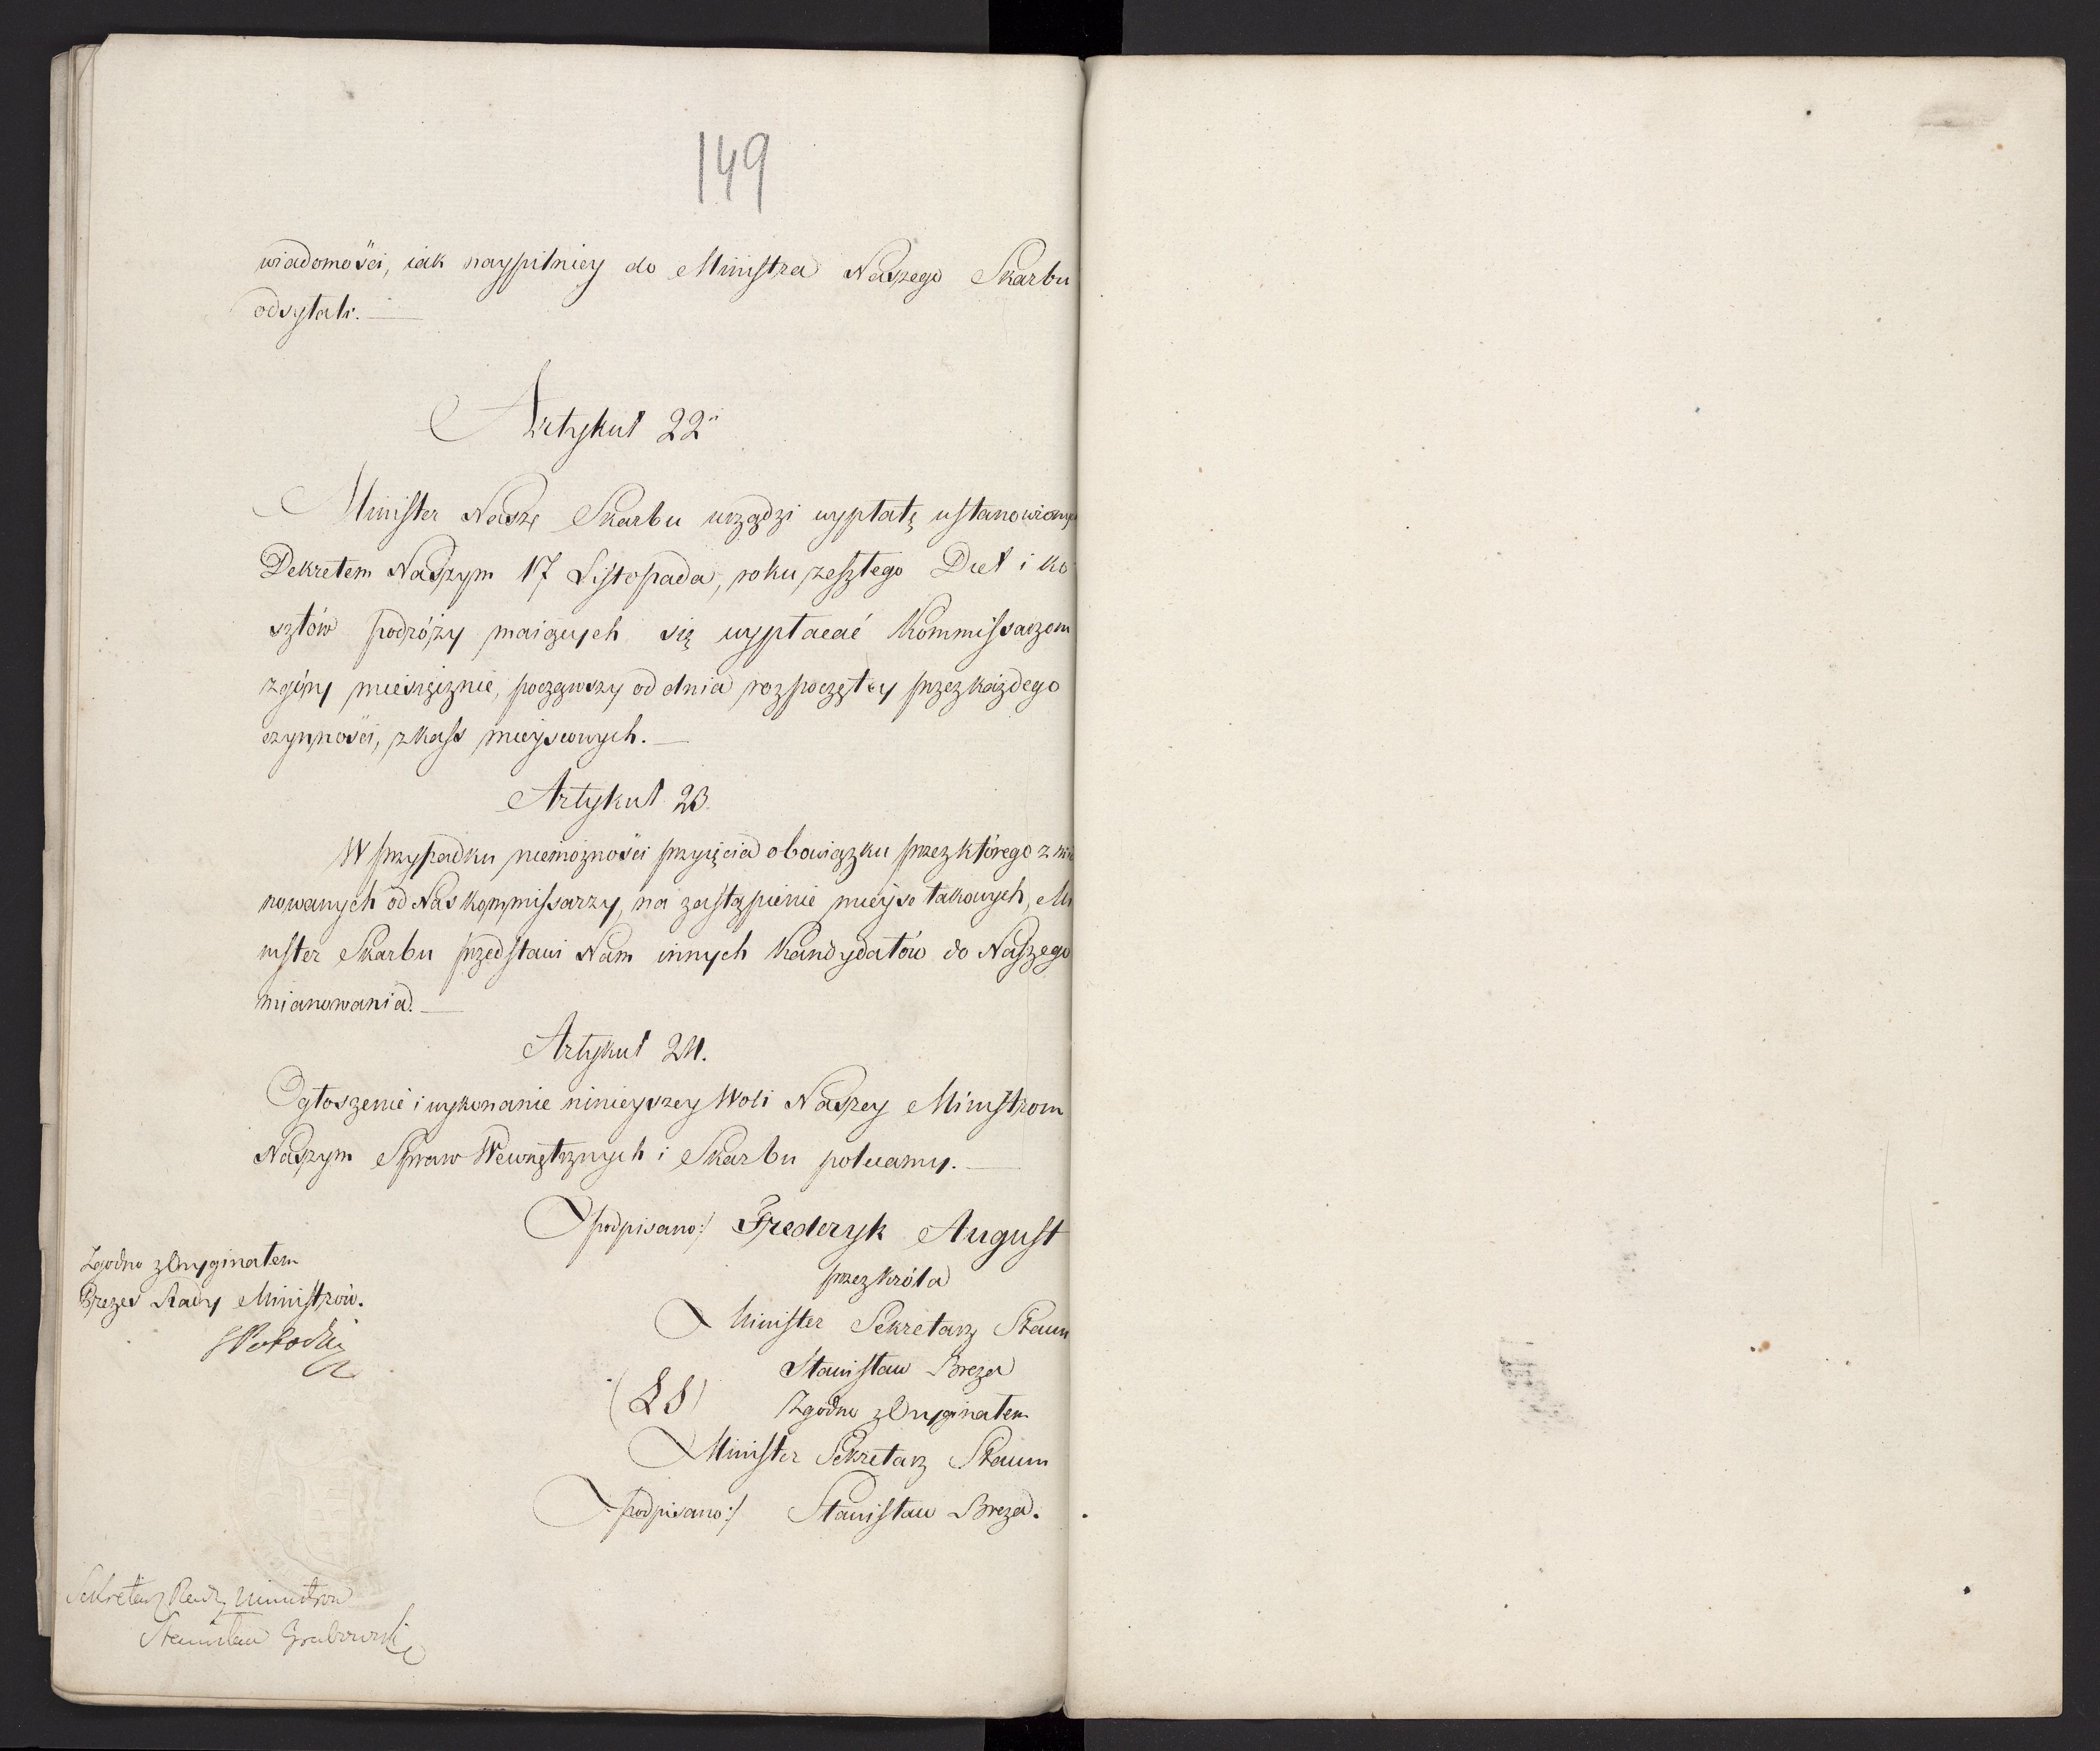 149
wiadomości, iak naypilniey do Ministra Naszego Skarbu
odsyłali. —
Artykuł 22
Minister Nasz Skarbu urządzi wypłatę ustanowionych
Dekretem Naszym 17 Listopada, roku zeszłego Diet i ko
sztów podróży maiących się wypłacać Kommissarzom
z góry miesięcznie, począwszy od dnia rozpoczętey przez każdego
czynności, z kass mieyscowych. —
Artykuł 23.
W przypadku niemożności przyięcia obowiązku przez którego z mia
nowanych od Nas kommissarzy, na zastąpienie mieysc takowych, Mi
nister Skarbu przedstawi Nam innych Kandydatów do Naszego
mianowania. —
Artykuł 24.
Ogłoszenie i wykonanie ninieyszey Woli Naszey Ministrom
Naszym Spraw Wewnętrznych i Skarbu polecamy. —
podpisano:/ Frederyk August
przez Króla
Minister Sekretarz Stanu
Stanisław Breza
(LS) Zgodno z Oryginałem
Minister Sekretarz Stanu
podpisano:/ Stanisław Breza.
Zgodno z Oryginałem
Prezes Rady Ministrów.
SPotocki
Sekretarz Rady Ministrów
Stanisław Grabowski